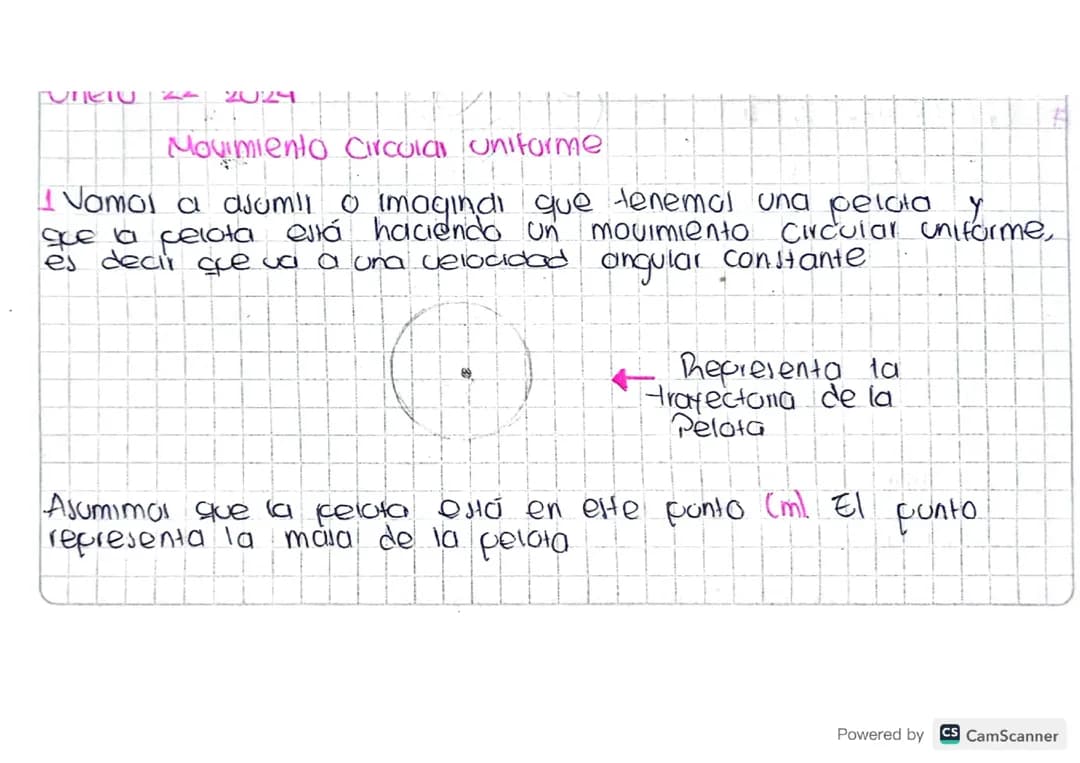 Enero 22 2024
Movimiento Circular uniforme
1 Vamos a asumir o imaginar que tenemos una pelota y
que la pelota está haciendo un movimiento circular uniforme,
es decir que va a una velocidad angular constante
Representa la
trayectoria de la
Pelota
Asumimos que la pelota está en este punto (m). El punto
representa la masa de la pelota
Powered by CS CamScanner